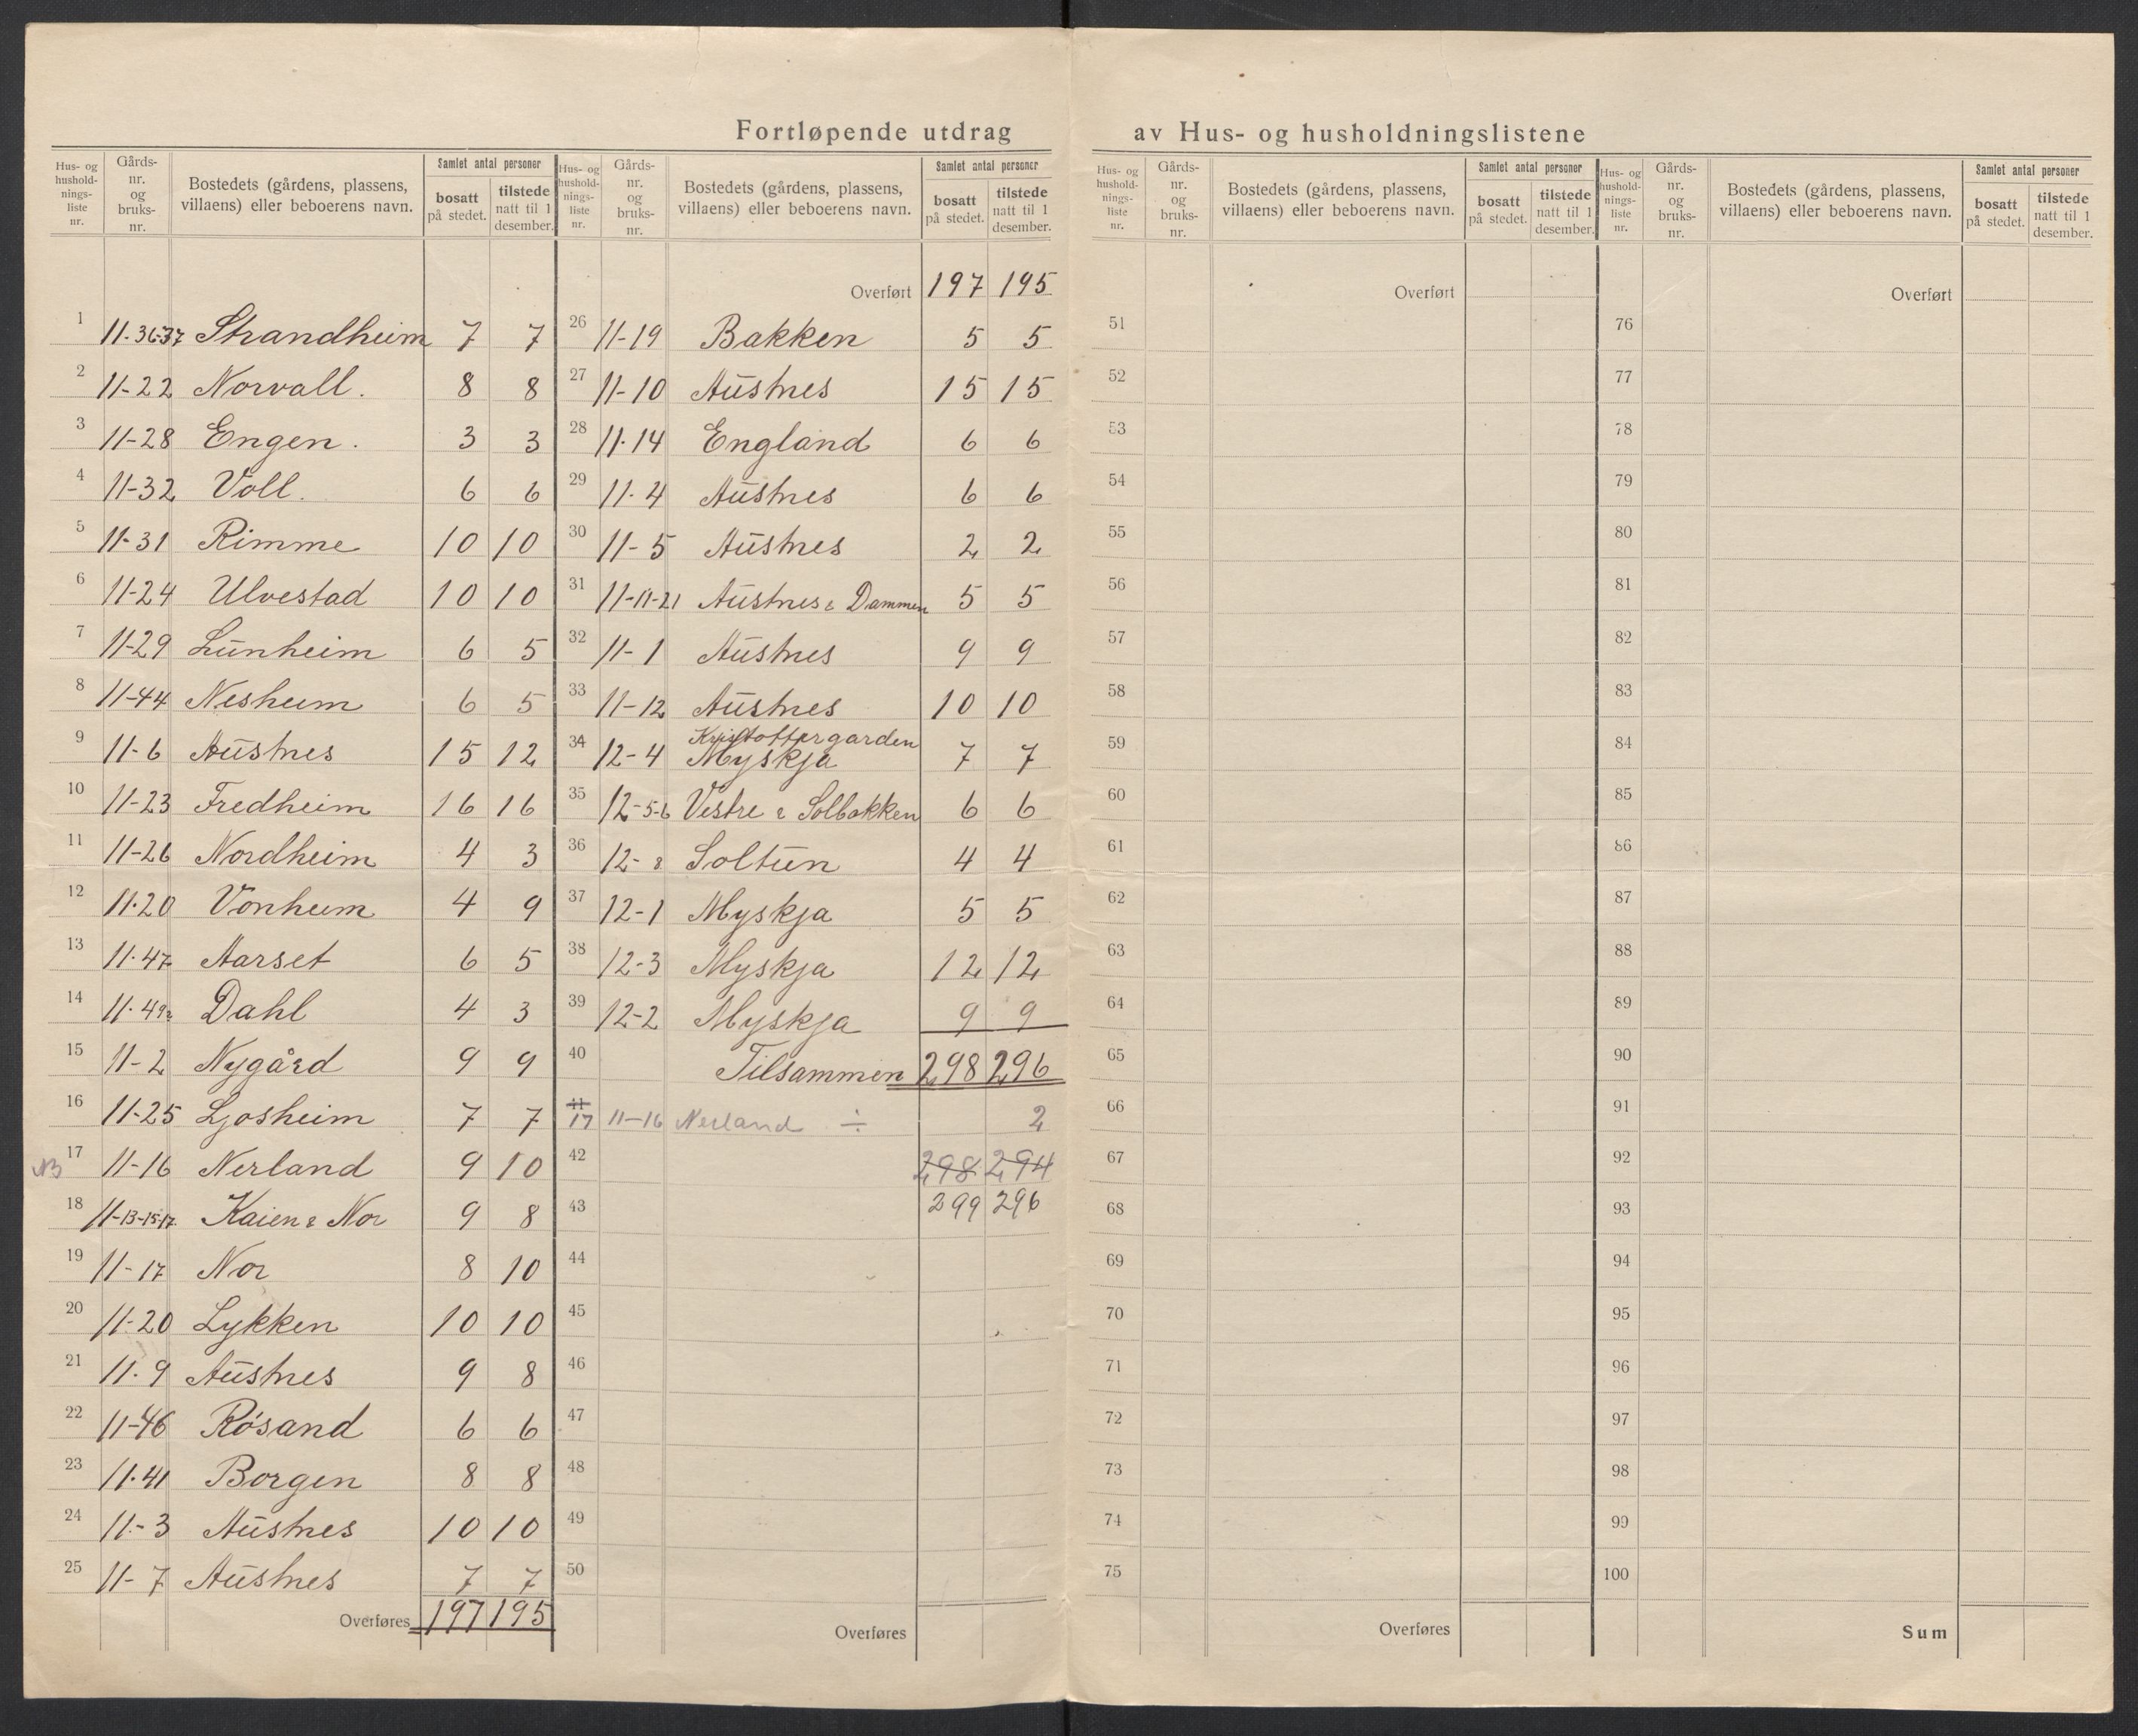 Fortløpende utdrag av Hus- og husholdningslistene
Hus- og hushold- nings- liste nr.
Gårds- nr. og bruks- nr.
Bostedets (gårdens, plassens, villaens) eller beboerens navn.
Samlet antal personer
bosatt på stedet.
tilstede natt til 1 desember.
1 11-36-37 Strandheim 7 7
2 11-22 Norvall. 8 8
3 11-28 Engen. 3 3
4 11-32 Voll. 6 6
5 11-31 Rimme 10 10
6 11-24 Ulvestad 10 10
7 11-29 Lunheim 6 5
8 11-44 Nesheim 6 5
9 11-6 Austnes 15 12
10 11-23 Fredheim 16 16
11 11-26 Nordheim 4 3
12 11-20 Vonheim 4 9
13 11-47 Aarset 6 5
14 11-49 Dahl 4 3
15 11-2 Nygård 9 9
16 11-25 Ljosheim 7 7
NB 17 11-16 Nerland 9 10
18 11-13-15-17 Kaien & Nor 9 8
19 11-17 Nor 8 10
20 11-20 Lykken 10 10
21 11-9 Austnes 9 8
22 11-46 Røsand 6 6
23 11-41 Borgen 8 8
24 11-3 Austnes 10 10
25 11-7 Austnes 7 7
Overføres 197 195
Hus- og hushold- nings- liste nr.
Gårds- nr. og bruks- nr.
Bostedets (gårdens, plassens, villaens) eller beboerens navn.
Samlet antal personer
bosatt på stedet.
tilstede natt til 1 desember.
Overført 197 195
26 11-19 Bakken 5 5
27 11-10 Austnes 15 15
28 11-14 England 6 6
29 11-4 Austnes 6 6
30 11-5 Austnes 2 2
31 11-11-21 Austnes & Dammen 5 5
32 11-1 Austnes 9 9
33 11-12 Austnes 10 10
Kristoffergarden
34 12-4 Myskja 7 7
35 12-5-6 Vestre & Solbakken 6 6
36 12-8 Soltun 4 4
37 12-1 Myskja 5 5
38 12-3 Myskja 12 12
39 12-2 Myskja 9 9
40 Tilsammen 298 296
41
17 11-16 Nerland ÷ 2
42 298 294
43 299 296
44
45
46
47
48
49
50
Overføres
Hus- og hushold- nings- liste nr.
Gårds- nr. og bruks- nr.
Bostedets (gårdens, plassens, villaens) eller beboerens navn.
Samlet antal personer
bosatt på stedet.
tilstede natt til 1 desember.
Overført
51
52
53
54
55
56
57
58
59
60
61
62
63
64
65
66
67
68
69
70
71
72
73
74
75
Overføres
Hus- og hushold- nings- liste nr.
Gårds- nr. og bruks- nr.
Bostedets (gårdens, plassens, villaens) eller beboerens navn.
Samlet antal personer
bosatt på stedet.
tilstede natt til 1 desember.
Overført
76
77
78
79
80
81
82
83
84
85
86
87
88
89
90
91
92
93
94
95
96
97
98
99
100
Sum